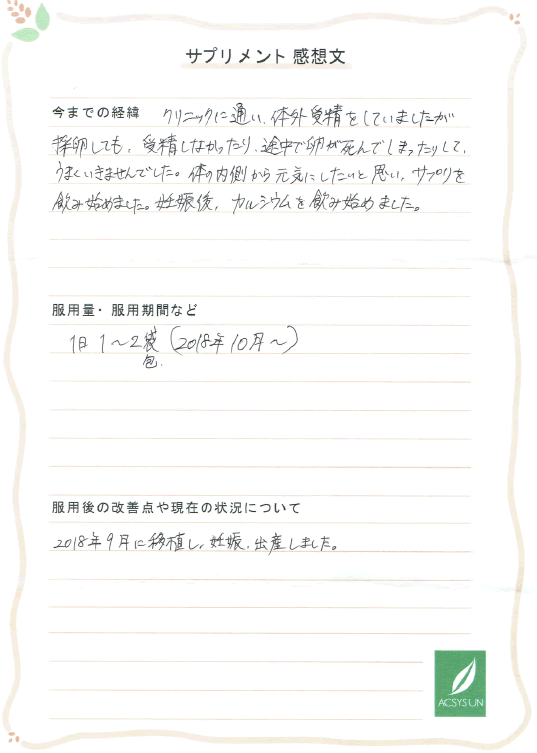 サプリメント 感想文
今までの経緯 クリニックに通い、体外受精をしていましたが
採卵しても、受精しなかったり、途中で卵が死んでしまったりして、
うまくいきませんでした。体の内側から元気にしたいと思い、サプリを
飲み始めました。妊娠後、カルシウムを飲み始めました。
服用量・服用期間など
1日 1～2袋 (2018年10月～)
包
服用後の改善点や現在の状況について
2018年9月に移植し、妊娠、出産しました。
ACSYSUN